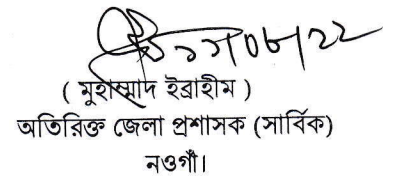 ১৭/০৮/২২
( মুহাম্মাদ ইব্রাহীম )
অতিরিক্ত জেলা প্রশাসক (সার্বিক)
নওগাঁ।